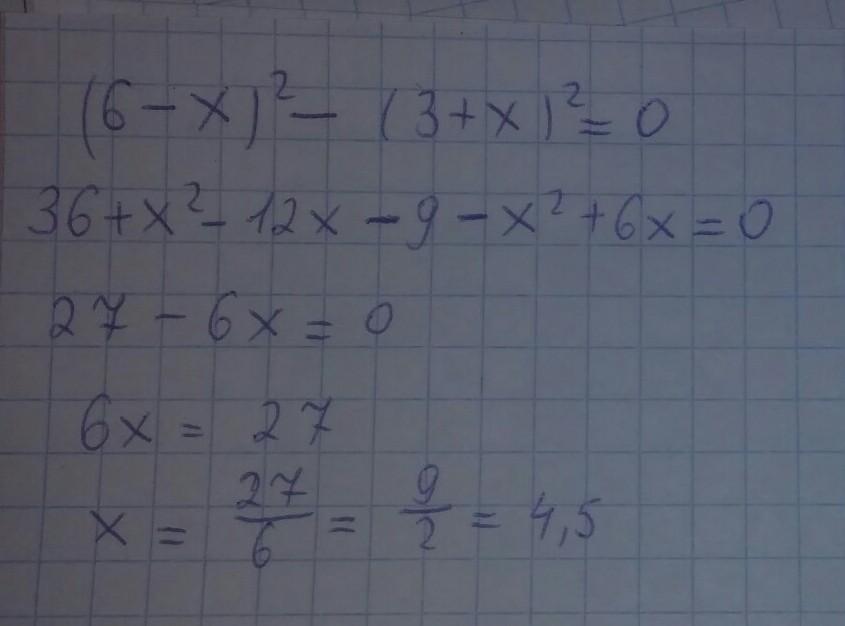 (6 - x)² - (3 + x)² = 0
36 + x² - 12x - 9 - x² + 6x = 0
27 - 6x = 0
6x = 27
x = 27/6 = 9/2 = 4,5